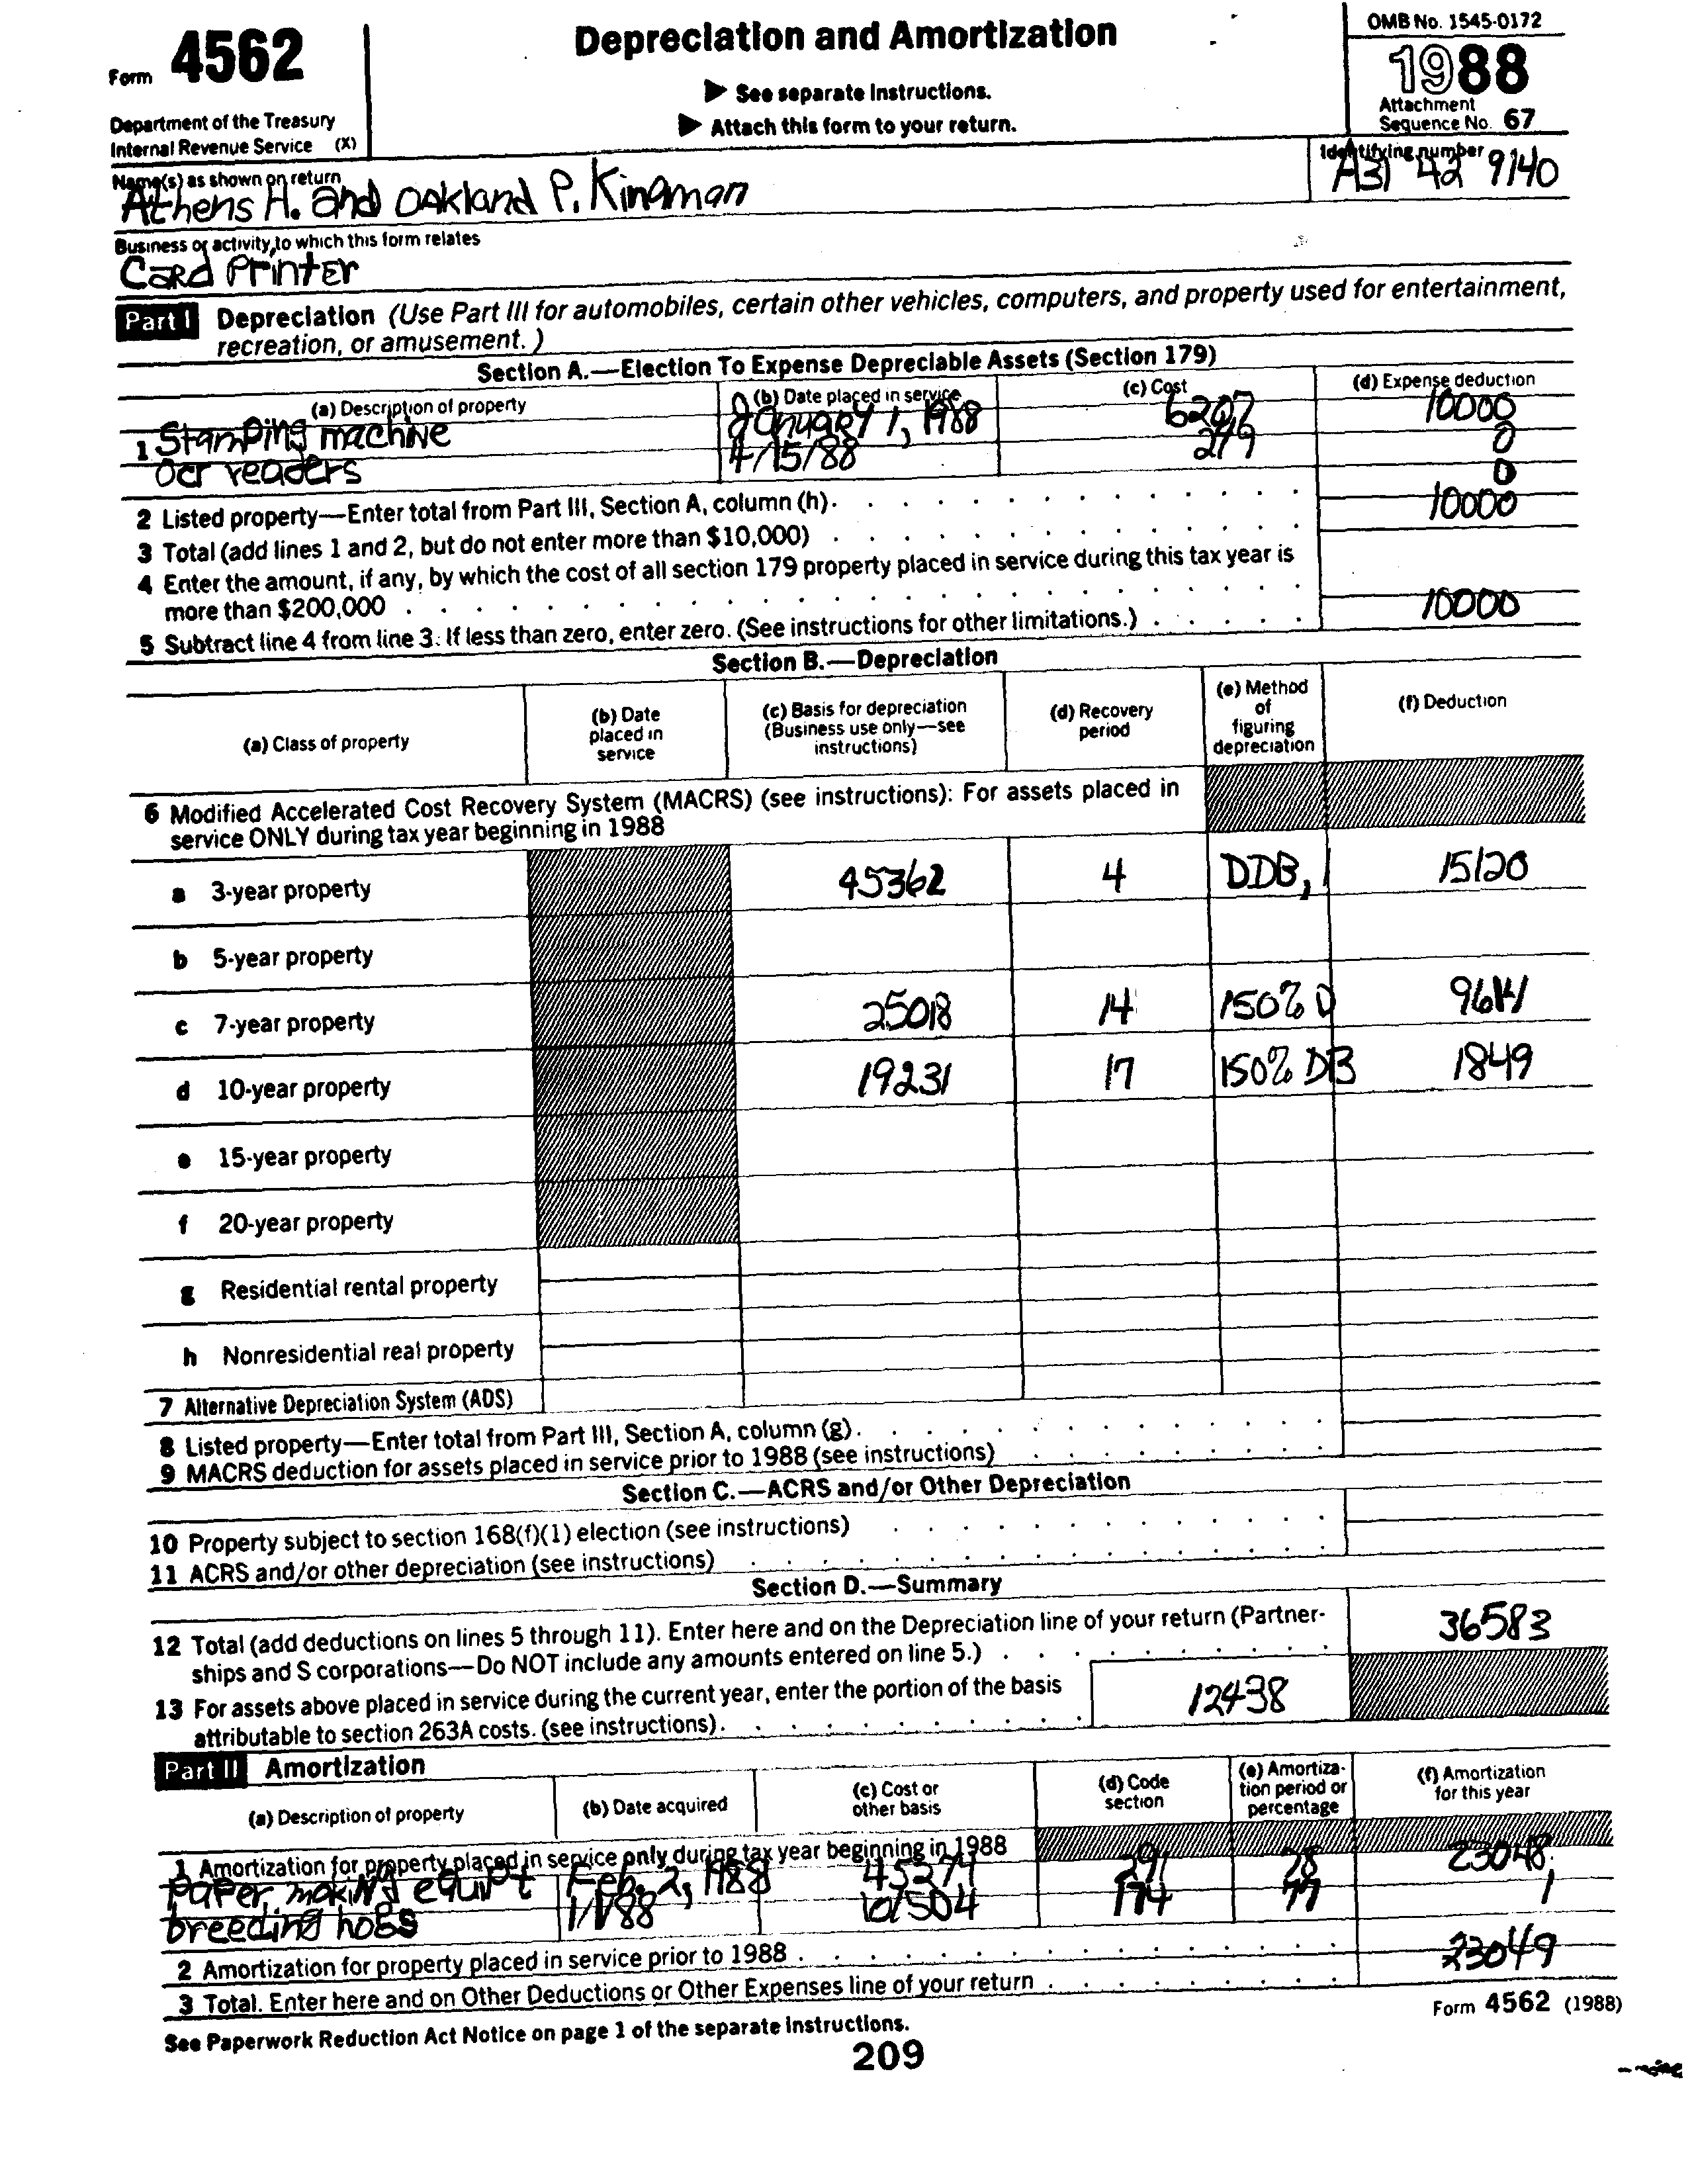 Form 4562
Depreciation and Amortization
OMB No. 1545-0172
1988
▶ See separate Instructions.
▶ Attach this form to your return.
Attachment
Sequence No. 67
Department of the Treasury
Internal Revenue Service (X)
Name(s) as shown on return
Identifying number
Athens H. and Oakland P. Kingman
A31 42 9140
Business or activity to which this form relates
Card Printer
Part I Depreciation (Use Part III for automobiles, certain other vehicles, computers, and property used for entertainment,
recreation, or amusement.)
Section A.—Election To Expense Depreciable Assets (Section 179)
(a) Description of property (b) Date placed in service (c) Cost (d) Expense deduction
1 Stamping machine January 1, 1988 6207 10000
Ocr readers 4/15/88 279 0
2 Listed property—Enter total from Part III, Section A, column (h). 0
3 Total (add lines 1 and 2, but do not enter more than $10,000) 10000
4 Enter the amount, if any, by which the cost of all section 179 property placed in service during this tax year is
more than $200,000
5 Subtract line 4 from line 3. If less than zero, enter zero. (See instructions for other limitations.) 10000
Section B.—Depreciation
(a) Class of property
(b) Date
placed in
service
(c) Basis for depreciation
(Business use only—see
instructions)
(d) Recovery
period
(e) Method
of
figuring
depreciation
(f) Deduction
6 Modified Accelerated Cost Recovery System (MACRS) (see instructions): For assets placed in
service ONLY during tax year beginning in 1988
a 3-year property 45362 4 DDB, 1 15120
b 5-year property
c 7-year property 25018 14 150% D 9614
d 10-year property 19231 17 150% DB 1849
e 15-year property
f 20-year property
g Residential rental property
h Nonresidential real property
7 Alternative Depreciation System (ADS)
8 Listed property—Enter total from Part III, Section A, column (g).
9 MACRS deduction for assets placed in service prior to 1988 (see instructions)
Section C.—ACRS and/or Other Depreciation
10 Property subject to section 168(f)(1) election (see instructions)
11 ACRS and/or other depreciation (see instructions)
Section D.—Summary
12 Total (add deductions on lines 5 through 11). Enter here and on the Depreciation line of your return (Partner-
ships and S corporations—Do NOT include any amounts entered on line 5.) 36583
13 For assets above placed in service during the current year, enter the portion of the basis
attributable to section 263A costs. (see instructions). 12438
Part II Amortization
(a) Description of property
(b) Date acquired
(c) Cost or
other basis
(d) Code
section
(e) Amortiza-
tion period or
percentage
(f) Amortization
for this year
1 Amortization for property placed in service only during tax year beginning in 1988
Paper making equipt Feb. 2, 1988 45274 291 28 23048
breeding hogs 1/1/88 101504 174 77 1
2 Amortization for property placed in service prior to 1988
3 Total. Enter here and on Other Deductions or Other Expenses line of your return 23049
Form 4562 (1988)
See Paperwork Reduction Act Notice on page 1 of the separate Instructions.
209